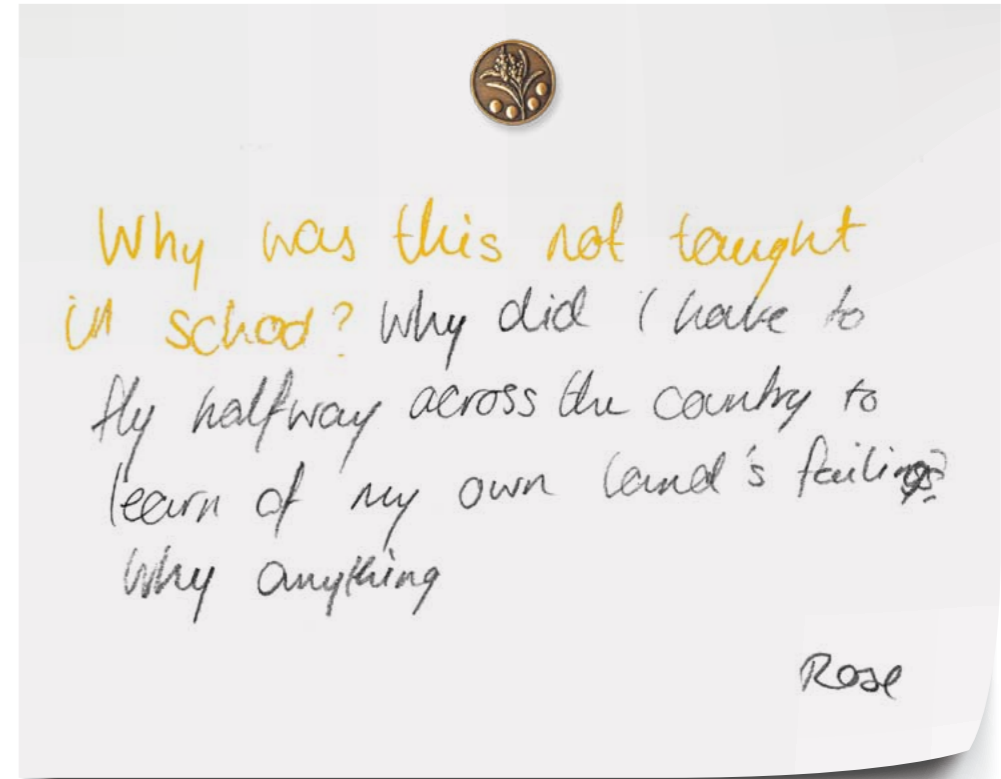 Why was this not taught
in school? Why did I have to
fly halfway across the country to
learn of my own land's failings?
Why anything
Rose